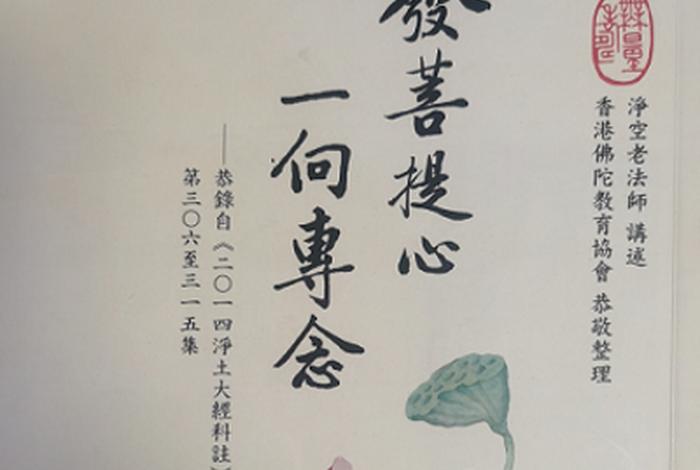 淨空老法師 講述
香港佛陀教育協會 恭敬整理
發菩提心
一向專念
——恭錄自《二〇一四淨土大經科註》
第三〇六至三一五集